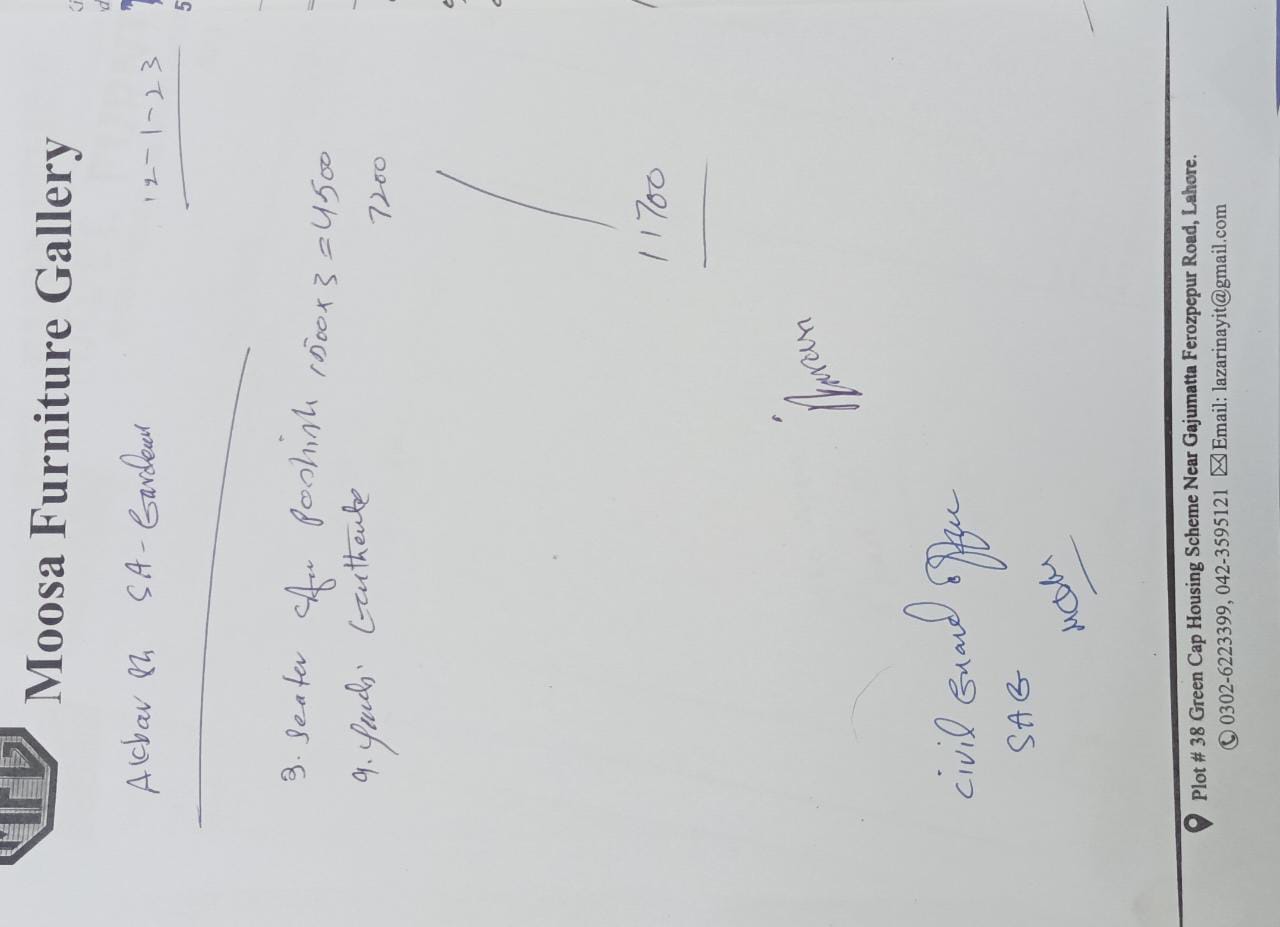 MFG
Moosa Furniture Gallery
Akbar Sh SA-Garden
12-1-23
3. Seater Poshish 1500x3 = 4500
9. 7200
11700
Imran
Civil Guard
SAG
Plot # 38 Green Cap Housing Scheme Near Gajumatta Ferozpepur Road, Lahore.
0302-6223399, 042-3595121 Email: lazarinayit@gmail.com